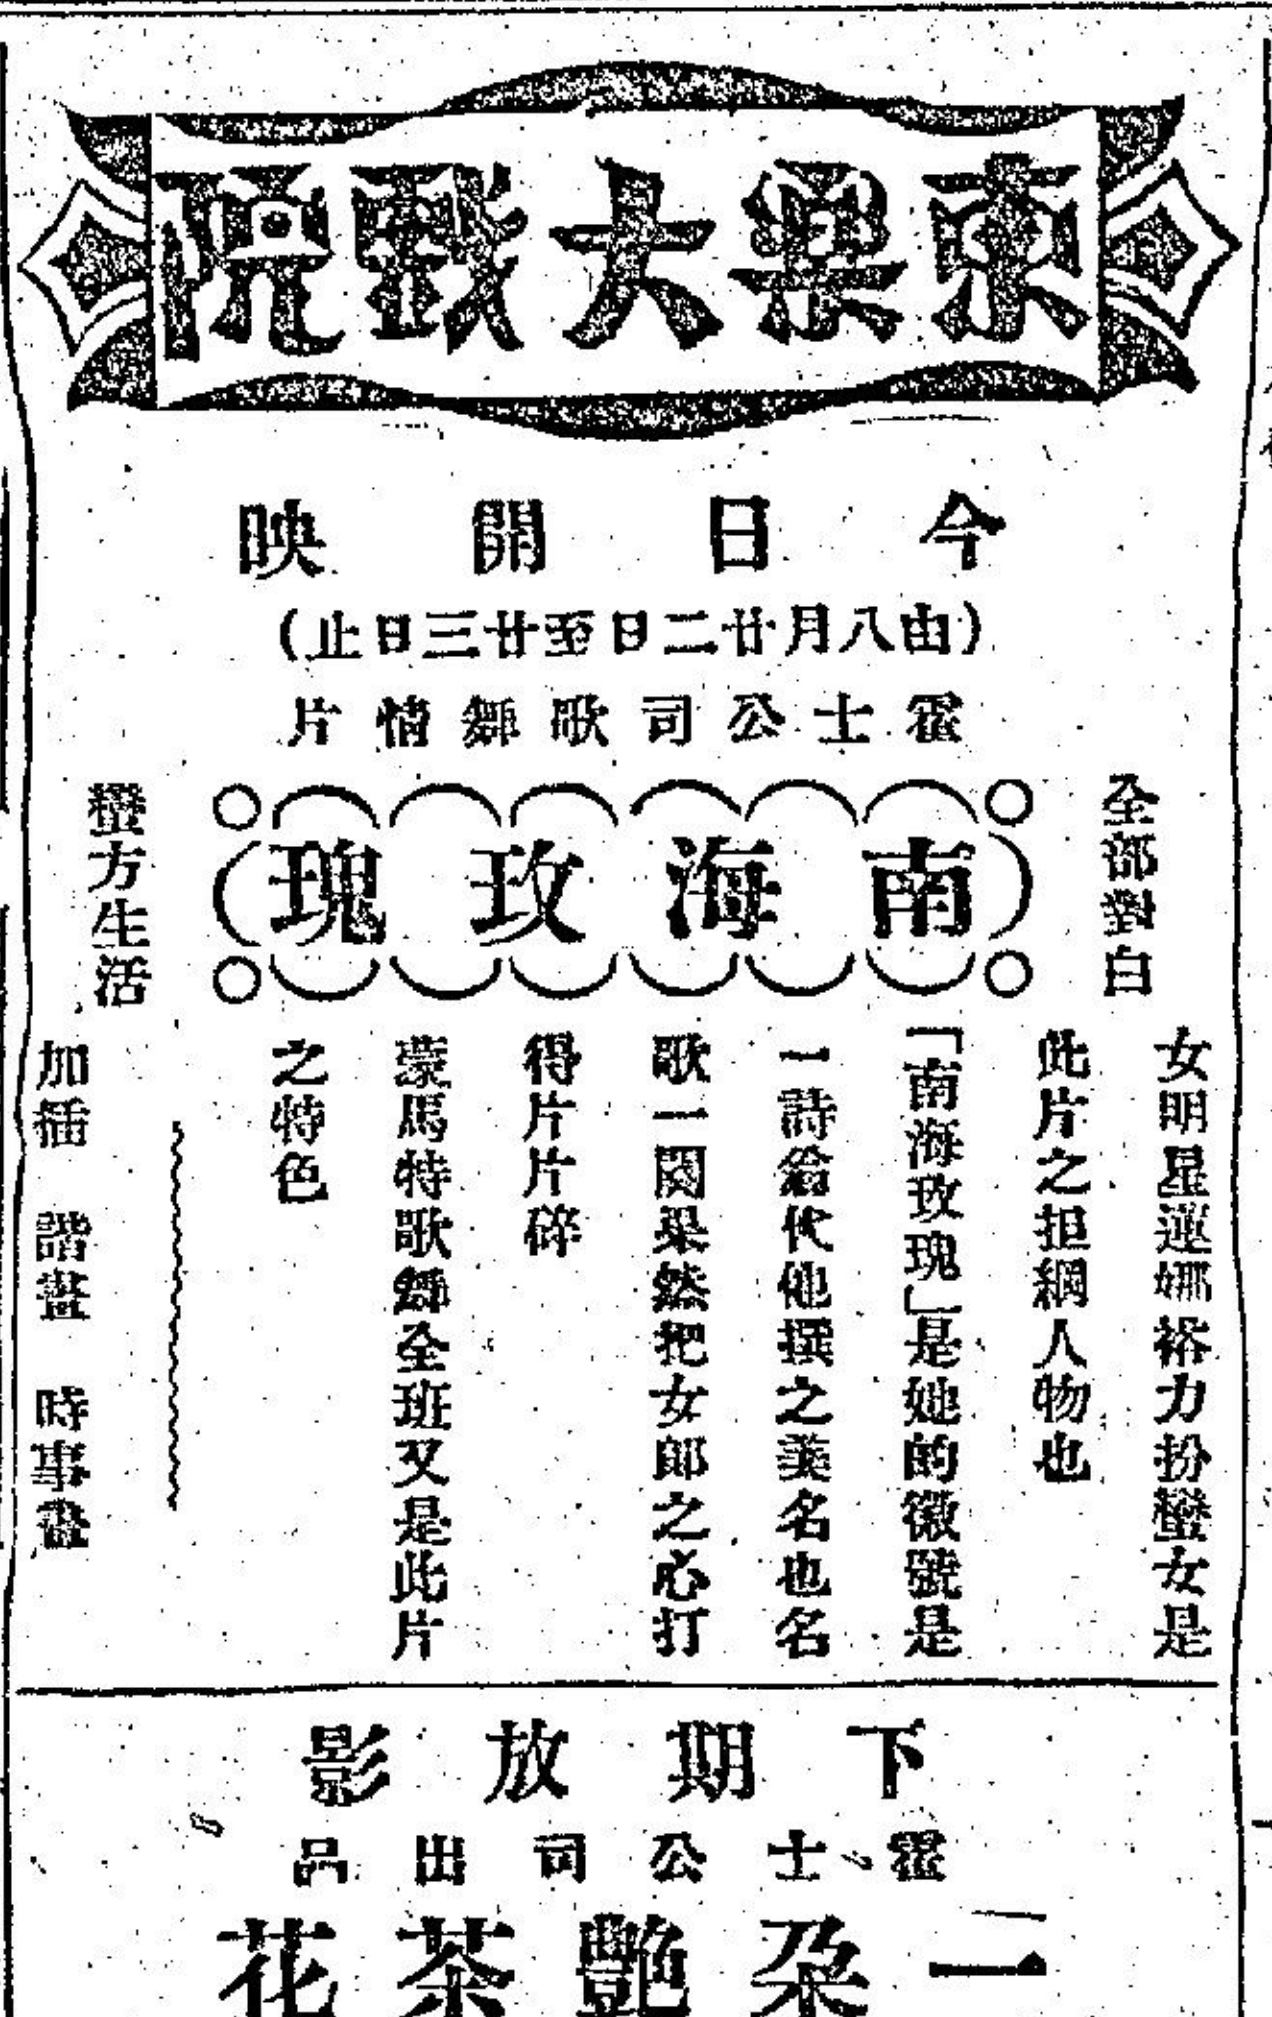 東樂大戲院
今日開映
(由八月廿二日至廿三日止)
霍士公司歌舞情片
全部對白
南海玫瑰
蠻方生活
女明星蓮娜裕力扮蠻女是
此片之担綱人物也
「南海玫瑰」是她的徽號是
一詩翁代他撰之美名也名
歌一闋果然把女郎之心打
得片片碎
蒙馬特歌舞全班又是此片
之特色
加插 諧畫 時事畫
下期放影
霍士公司出品
一朶艷茶花